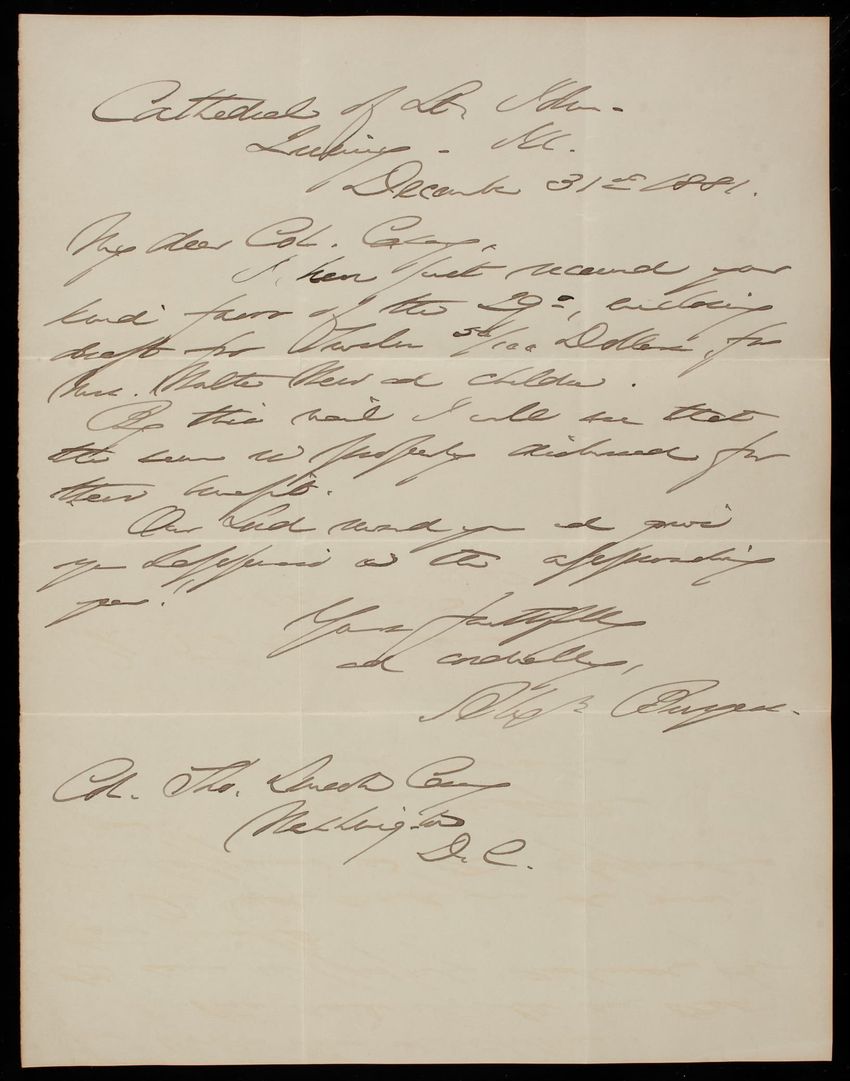 Cathedral of St. John -
Quincy - Ill.
December 31st 1881.
My dear Col. Casey,
I have just received your
kind favor of the 29th, enclosing
draft for Twelve 50/100 Dollars, for
Mrs. Walter and children.
By this mail I will see that
the sum is properly disbursed for
their benefit.
Our Lord reward you and give
you happiness in the approaching
year!
Yours faithfully
and cordially,
Alex Burgess.
Col. Tho. Lincoln Casey
Washington
D. C.